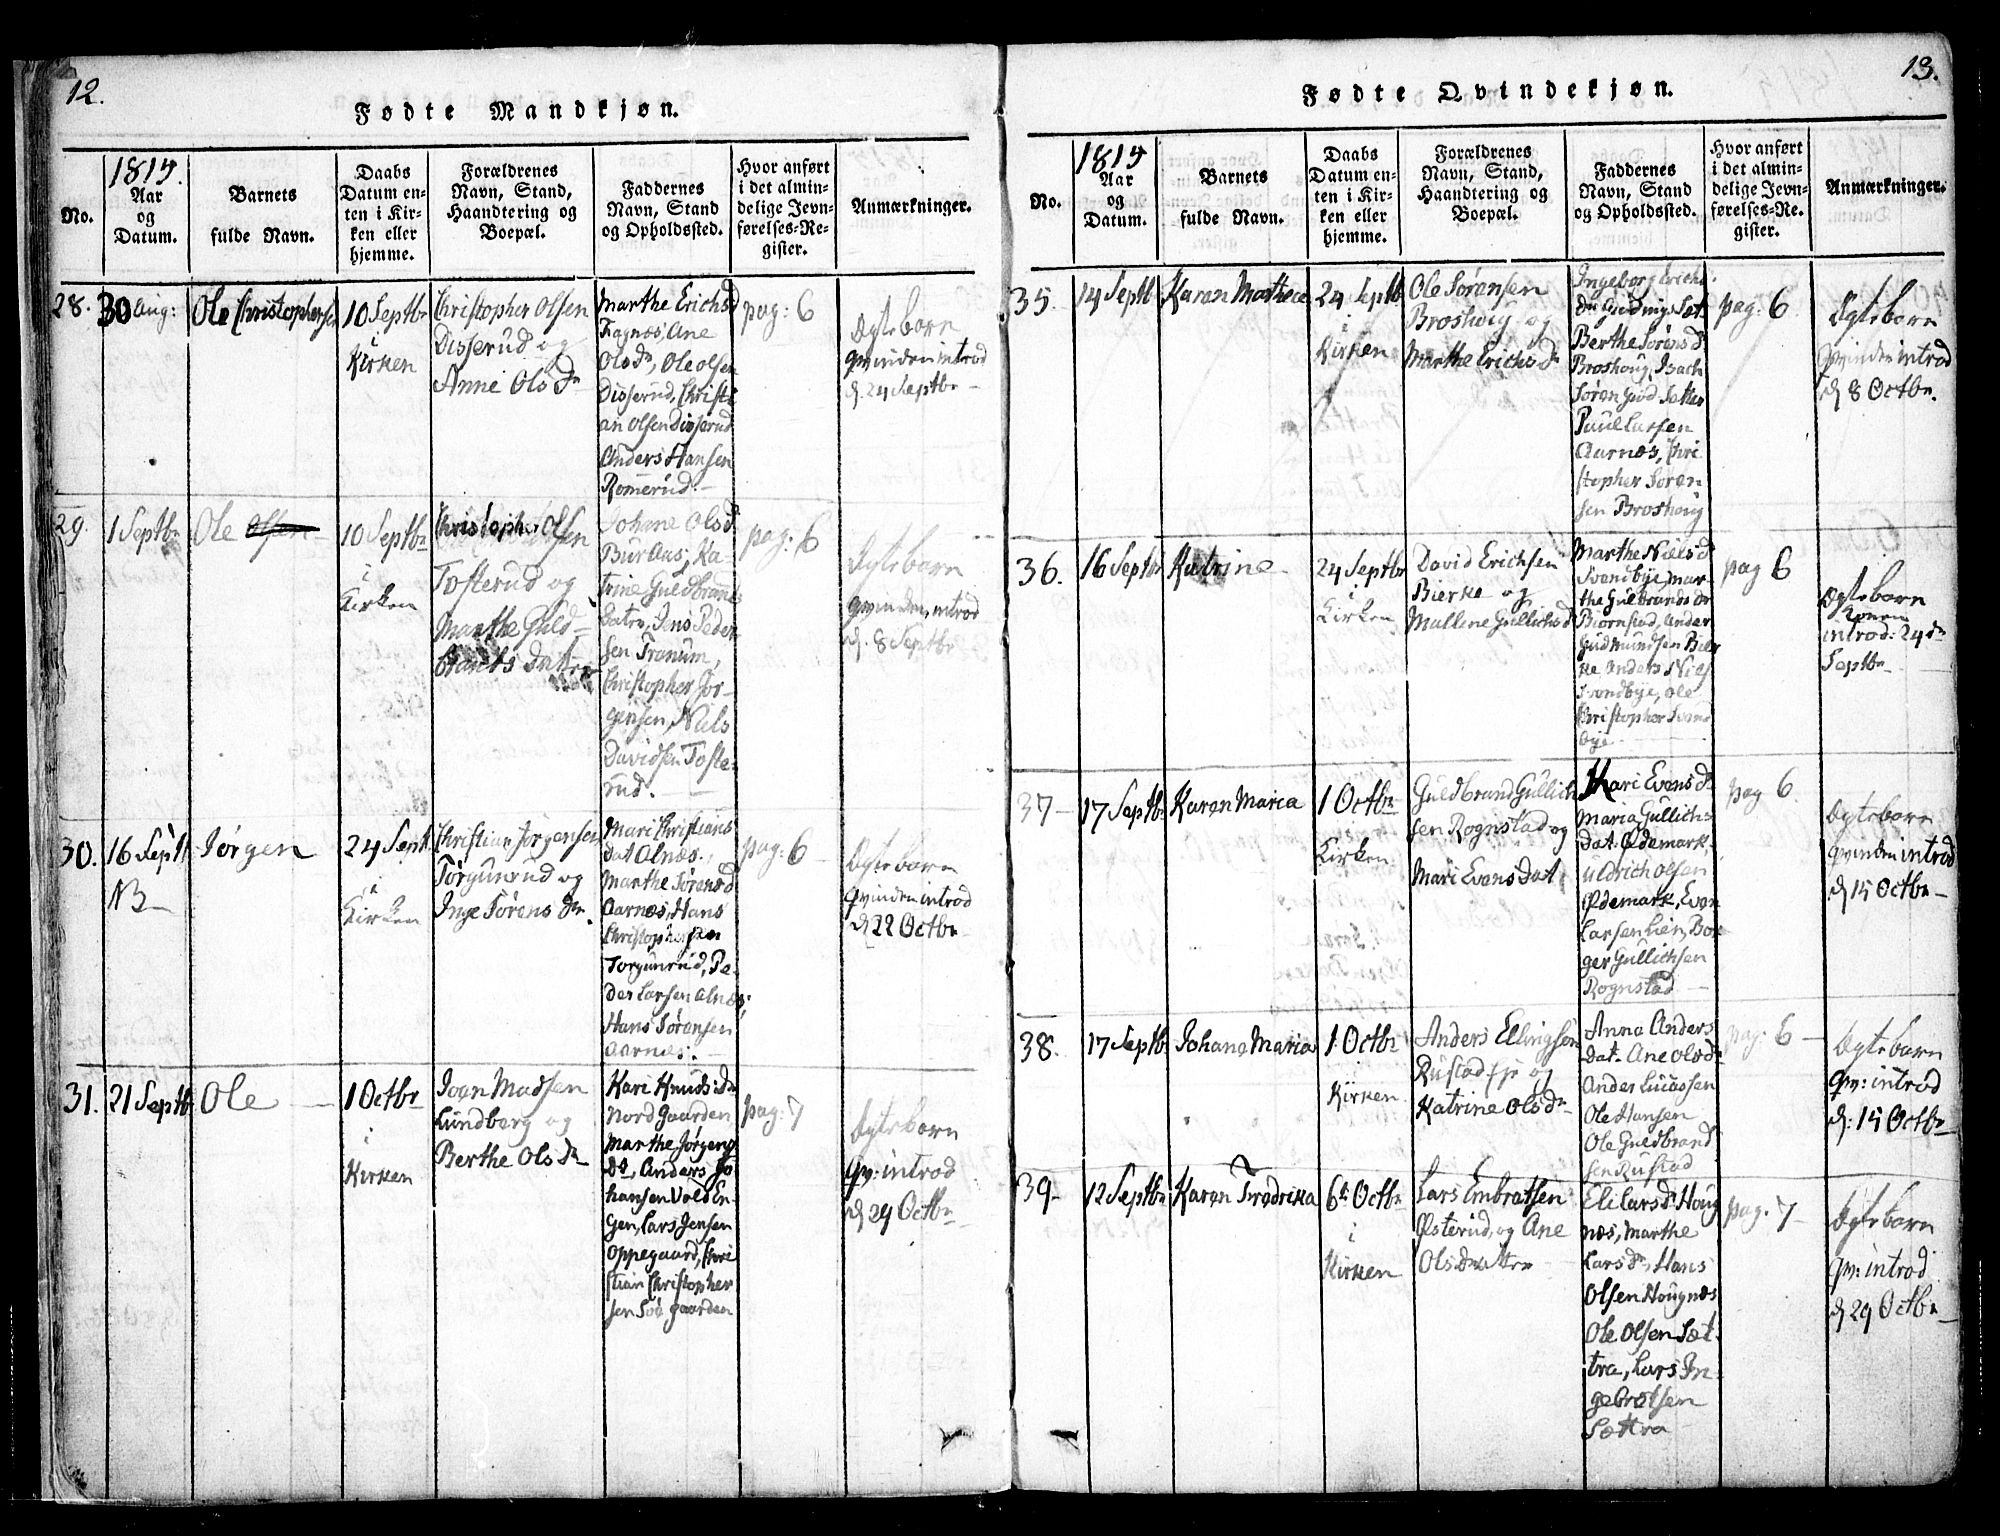 12.
Fødte Mandkjøn.
No.
1815.
Aar
og
Datum.
Barnets
fulde Navn.
Daabs
Datum en-
ten i Kir-
ken eller
hjemme.
Forældrenes
Navn, Stand,
Haandtering og
Boepæl.
Faddernes
Navn, Stand
og Opholdssted.
Hvor anført
i det almin-
delige Jevn-
førelses-Re-
gister.
Anmærkninger.
28.
30 Aug:
Ole Christophersen
10 Septbr
i
Kirken
Christopher Olsen
Disserud og
Anne Olsdr
Marthe Erichsd
Fagnæs, Ane
Olsdr, Ole Olsen
Disserud, Christi
an Olsen Disserud
Anders Hansen
Romerud.
pag: 6
Ægtebarn
Qvinden introd
d. 24 Septbr
29.
1 Septbr
Ole Olsen
10 Septbr
i
Kirken
Christopher Olsen
Tosterud og
Marthe Guld-
brands Datter
Johane Olsdr
Buraas, Ka-
trine Guldbrands
Datre, Jens Peder
sen Tranum,
Christopher Jør-
gensen, Niels
Davidsen Toste-
rud.
pag: 6
Ægtebarn
qvinden introd
d. 8 Septbr
30.
16 Septb
NB
Jørgen
24 Sept.
i
Kirken
Christian Jørgensen
Torgunrud og
Inge Sørens dr.
Mari Christians
dat Alnæs.
Marthe Sørensd
Aarnæs, Hans
Christophersen
Torgunrud, Pe-
der Larsen Alnæs,
Hans Sørensen
Aarnæs.
pag: 6
Ægtebarn
Qvinden introd
d 22 Octbr
31.
21 Septb
Ole
1 Octbr
i
Kirken
Joan Madsen
Lundberg og
Berthe Olsdr
Kari Knudsdr
Nord Gaarden
Marthe Jørgens
Dr, Anders Jo
hansen Vold En-
gen, Lars Jensen
Oppegaard, Chri
stian Christopher
sen Sød gaarden
pag: 7
Ægtebarn
Qv: introd
d 29 Octbr
13.
Fødte Qvindekjøn.
No.
1815
Aar
og
Datum.
Barnets
fulde Navn.
Daabs
Datum en-
ten i Kir-
ken eller
hjemme.
Forældrenes
Navn, Stand,
Haandtering og
Boepæl.
Faddernes
Navn, Stand
og Opholdssted.
Hvor anført
i det almin-
delige Jevn-
førelses-Re-
gister.
Anmærkninger.
35.
14 Septb
Karen Mathea
24 Septbr
i
Kirken
Ole Sørensen
Broshoug og
Marthe Erichsdr
Ingeborg Erichs
Berthe Sørensd
Broshoug, Isach
Søren
Paul Larsen
Aarnæs, Chri
stopher Søren
sen Broshoug
pag: 6
Ægtebarn
Qvinden introd
d 8 Octbr.
36.
16 Septbr
Katrine
24 Septbr
i
Kirken
David Erichsen
Bierke og
Mallene Gullichsd
Marthe Nielsd
Svendbye, mar-
the Gulbrandsdr
Biørnstad, Ander
Gudmundsen Bier
ke Anders Niels
Svendbye, Ole
Christopher Svend
bye
pag 6
Ægtebarn
Konen
introd: 24de
Septbr
37
17 Septbr
Karen Maria
1 Octbr
i
Kirken
Guldbrand Gullich
sen Rognstad og
Mari Evens Dat
Kari Evensdr
Maria Gullichs
Dat. Ødemark.
Uldrich Olsen
Ødemark, Even
Larsen Lien, Bor
ger Gullichsen
Rognstad
pag 6
Ægtebarn
Qvinden introd
d 15 Octbr
38.
17 Septbr
Johane Maria
1 Octbr
i
Kirken
Anders Ellingsen
Rustad eje og
Katrine Olsdr
Anna Anders
Dat. Ane Olsdr
Ander Lucassen
Ole Hansen
Ole Guldbrand
sen Rustad
pag: 6
Ægtebarn
Qv: introd
d: 15 Octbr
39
12 Septbr
Karen Fredrika
6te Octbr
i
Kirken
Lars Embretsen
Østerud, og Ane
Olsdatter
Eli Larsdr Houg
næs, Marthe
Larsdr, Hans
Olsen Hougnæs
Ole Olsen Sæt-
tra, Lars In-
gebretsen
Sættra
pag: 7
Ægtebarn
Qv: introd
d 29 Octbr